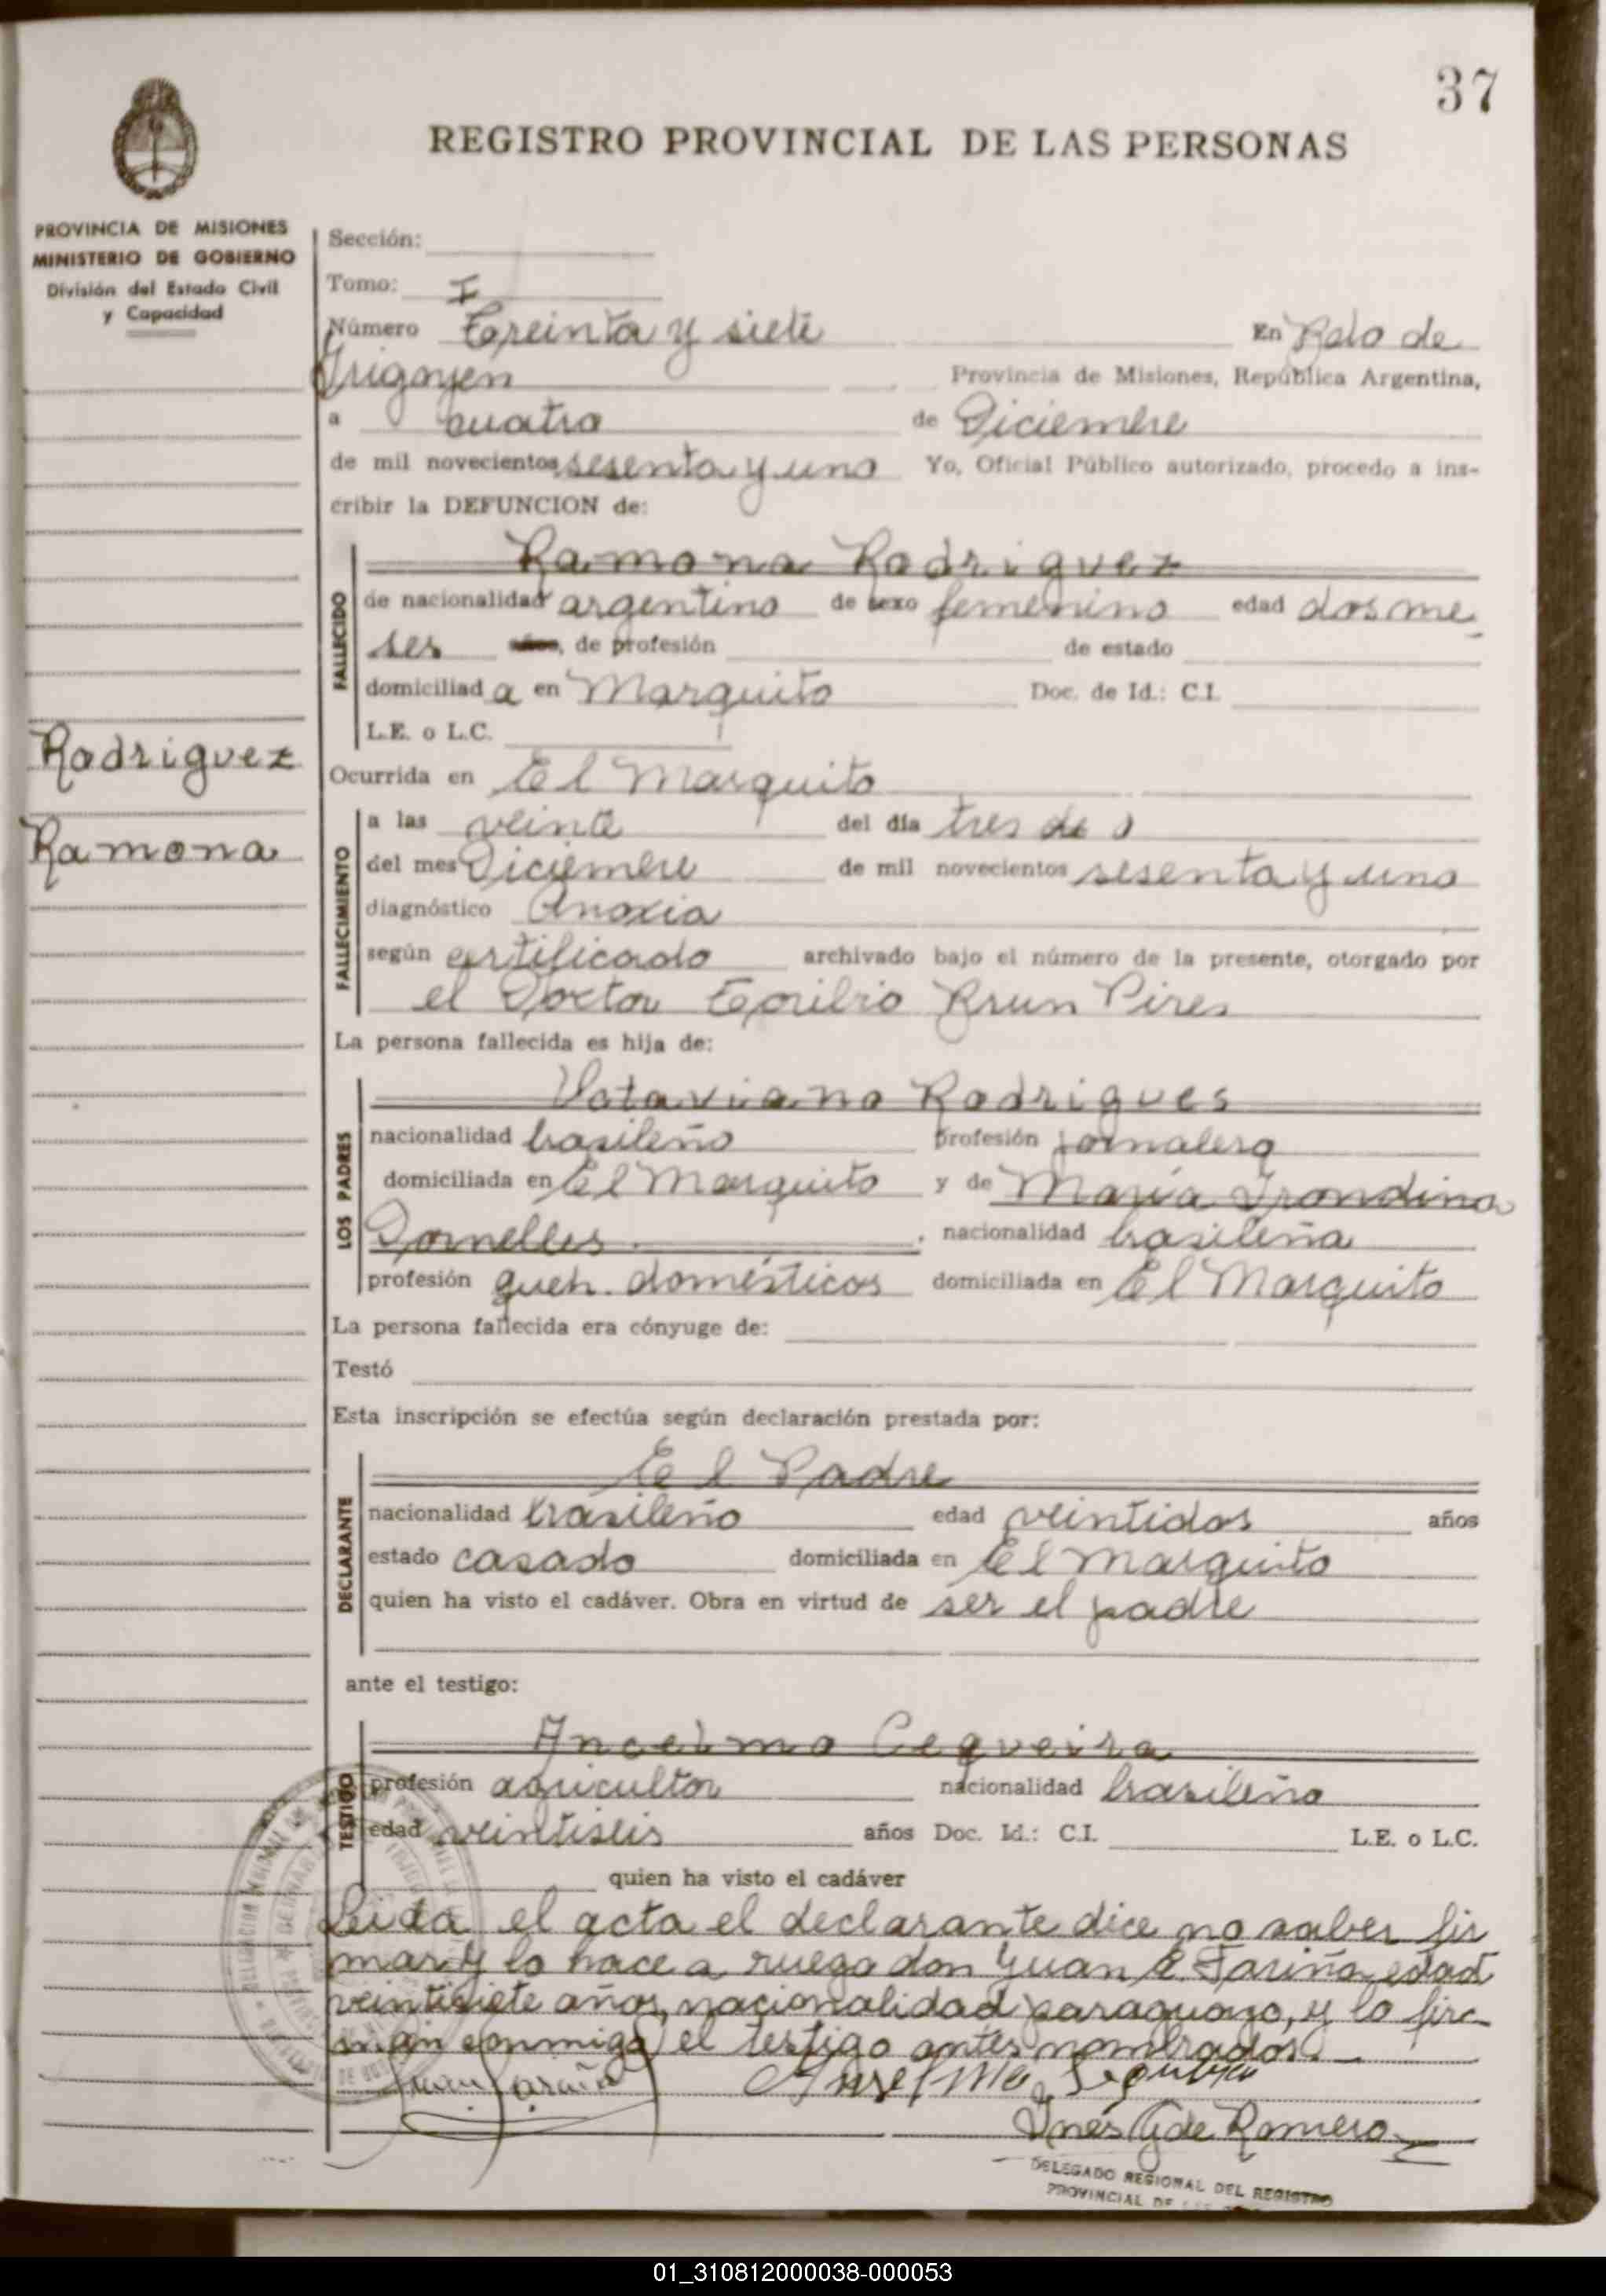 37
REGISTRO PROVINCIAL DE LAS PERSONAS
PROVINCIA DE MISIONES
MINISTERIO DE GOBIERNO
División del Estado Civil
y Capacidad
Sección:
Tomo: I
Número Treinta y siete En Bdo de
Irigoyen Provincia de Misiones, República Argentina,
a cuatro de Diciembre
de mil novecientos sesenta y uno Yo, Oficial Público autorizado, procedo a ins-
cribir la DEFUNCION de:
Ramona Rodriguez
FALLECIDO
de nacionalidad argentina de sexo femenino edad dos me
ses años, de profesión de estado
domiciliad a en Marquito Doc. de Id.: C.I.
L.E. o L.C.
Rodriguez
Ramona
Ocurrida en El Marquito
FALLECIMIENTO
a las veinte del día tres de
del mes Diciembre de mil novecientos sesenta y uno
diagnóstico Anoxia
según certificado archivado bajo el número de la presente, otorgado por
el Doctor Brun Pires
La persona fallecida es hija de:
LOS PADRES
Otaviano Rodrigues
nacionalidad brasileño profesión jornalero
domiciliada en El Marquito y de María
Dornelles, nacionalidad brasileña
profesión queh. domésticos domiciliada en El Marquito
La persona fallecida era cónyuge de:
Testó
Esta inscripción se efectúa según declaración prestada por:
DECLARANTE
El Padre
nacionalidad brasileño edad veintidos años
estado casado domiciliada en El Marquito
quien ha visto el cadáver. Obra en virtud de ser el padre
ante el testigo:
TESTIGO
Ancelmo Ceqveira
profesión agricultor nacionalidad brasileño
edad veintiseis años Doc. Id.: C.I. L.E. o L.C.
quien ha visto el cadáver
Leida el acta el declarante dice no saber fir
mar y lo hace a ruego don Juan E. Fariña edad
veintisiete años, nacionalidad paraguayo, y lo fir
man conmigo el testigo antes nombrados.
Juan Fariña Anselmo
Inés G de Romero
DELEGADO REGIONAL DEL REGISTRO
PROVINCIAL DE LAS
01_310812000038-000053